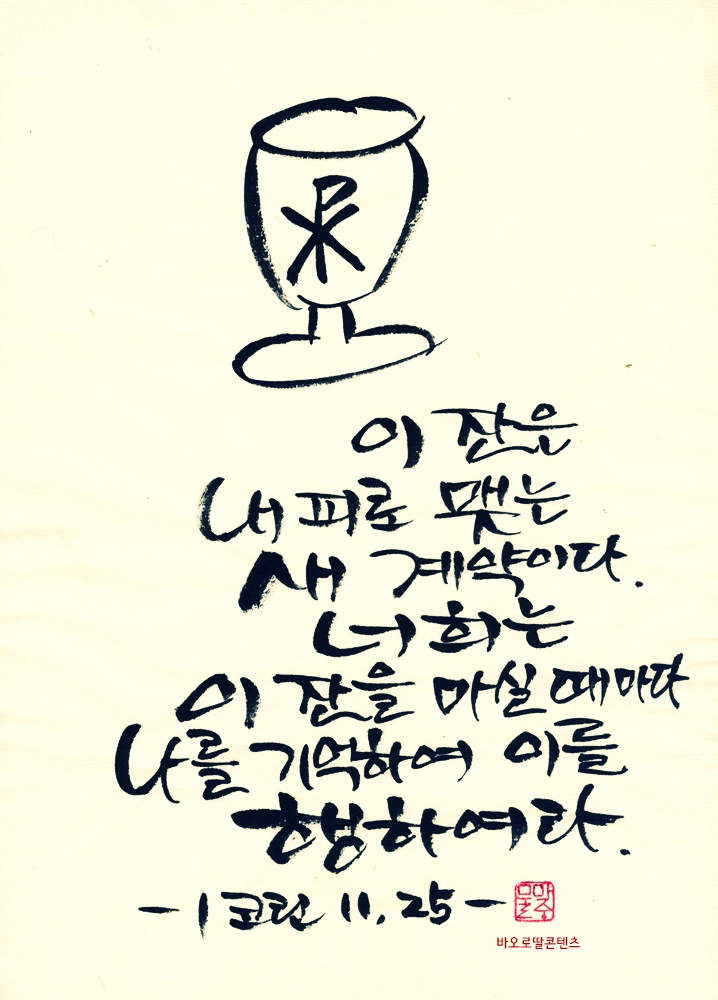 이 잔은
내 피로 맺는
새 계약이다.
너희는
이 잔을 마실 때마다
나를 기억하여 이를
행하여라.
-1코린 11,25-
바오로딸콘텐츠